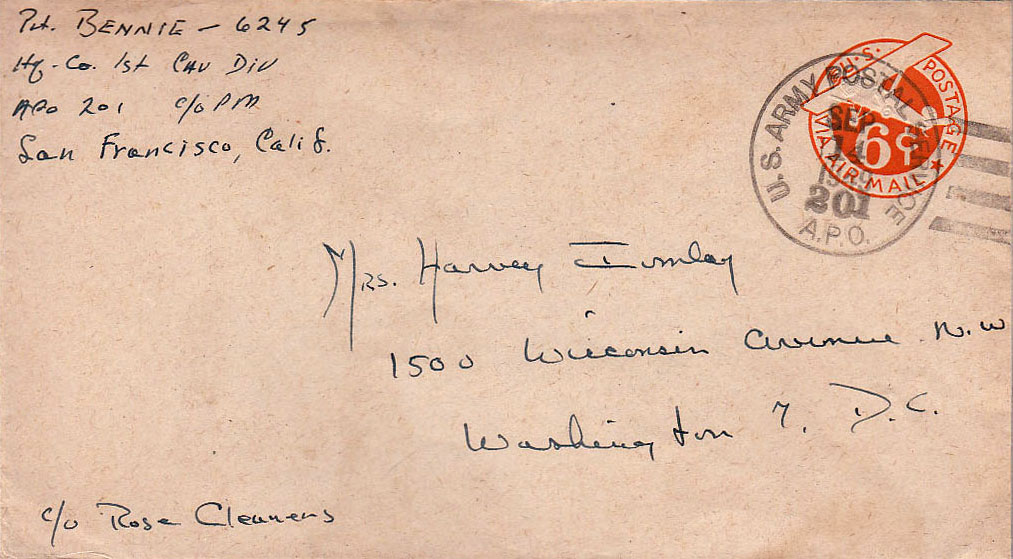 Pvt. BENNIE - 6245
Hq. Co. 1st CAV DIV
APO 201 c/o PM
San Francisco, Calif.
U.S. POSTAGE
VIA AIR MAIL
6¢
U.S. ARMY POSTAL SERVICE
SEP
14
201
A.P.O.
Mrs. Harvey Imlay
1500 Wisconsin Avenue N.W
Washington 7. D.C.
c/o Rose Cleaners